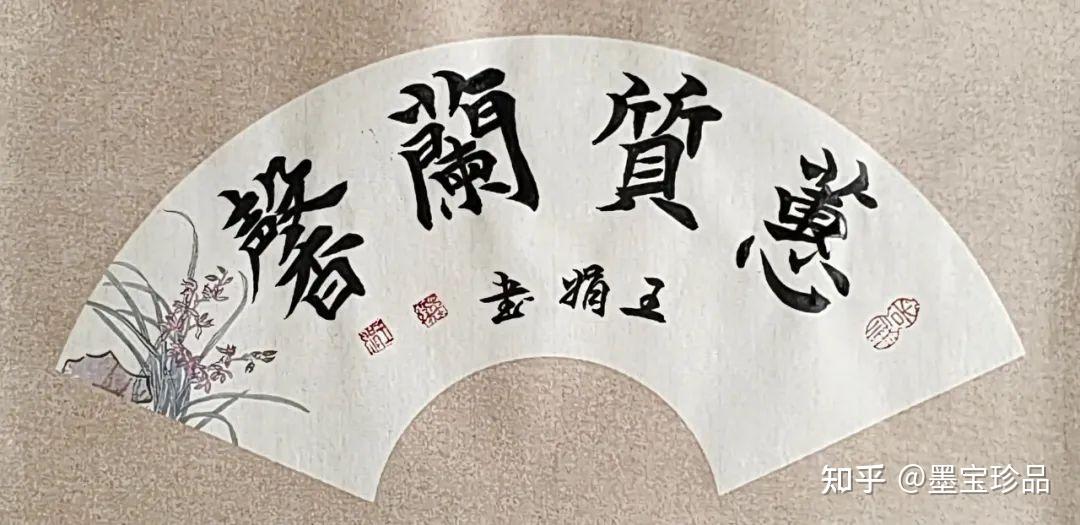 蕙質蘭馨
王娟書
知乎 @墨宝珍品